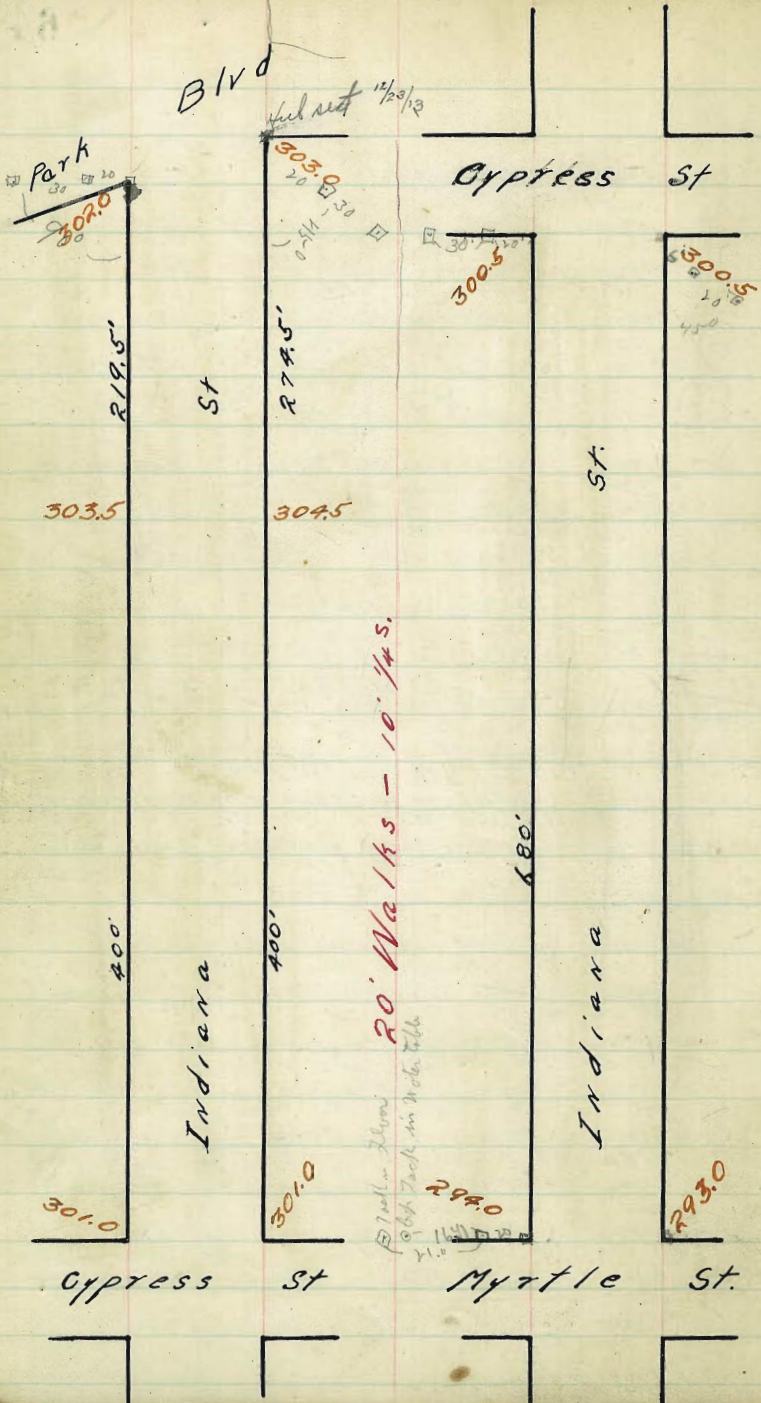 Blvd
Hub set 12/23/13
Park
30
20
302.0
303.0
20
30
Cypress St
30
20'
300.5
5
300.5
20
45°
219.5'
St
274.5'
St.
303.5
304.5
20' Walks - 10' 1/4s.
680'
400'
400'
Indiana
Indiana
301.0
301.0
294.0
293.0
21.0
Cypress St
Myrtle St.